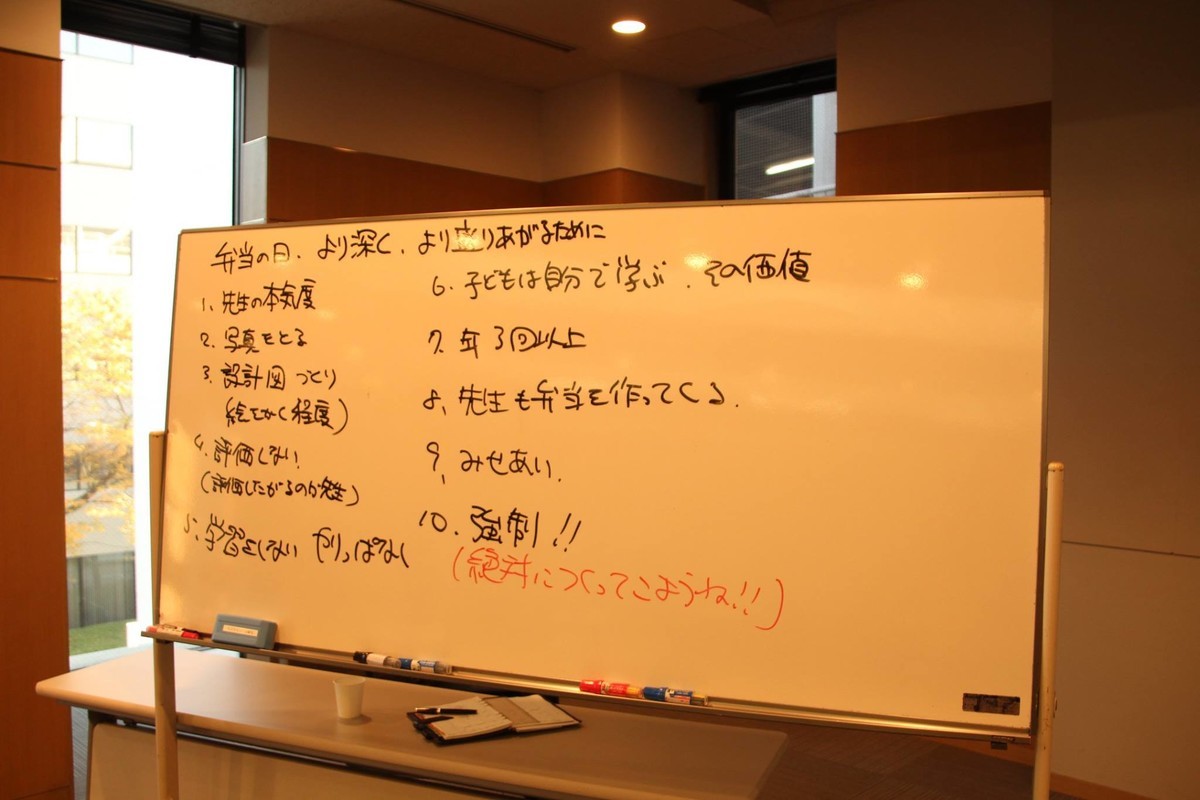 弁当の日、より深く、より盛りあがるために
1、先生の本気度
2、写真をとる
3、設計図づくり
(絵をかく程度)
4、評価しない
(評価したがるのが先生)
5、学習をしない やりっぱなし
6、子どもは自分で学ぶ、その価値
7、年3回以上
8、先生も弁当を作ってくる。
9、みせあい。
10、強制!!
(絶対につくってこようね!!)